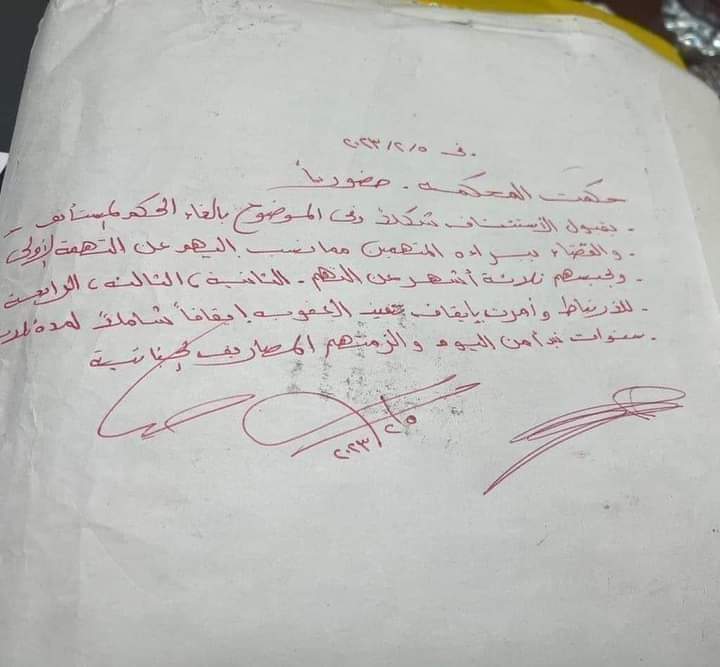 فى ٢٠٢٣/٢/٥
حكمت المحكمه . حضورياً
. بقبول الأستئناف شكلاً وفى الموضوع بالغاء الحكم المستأنف
. والقضاء ببراءه المتهمين مما نسب اليهم عن التهمة الأولى
. وبحبسهم ثلاثة أشهر عن التهم . الثانية ، الثالثه ، الرابعة
. للارتباط وأمرت بإيقاف تنفيذ العقوبه إيقافاً شاملاً لمدة ثلاث
. سنوات تبدأ من اليوم والزمتهم المصاريف الجنائية
٢٠٢٣/٢/٥